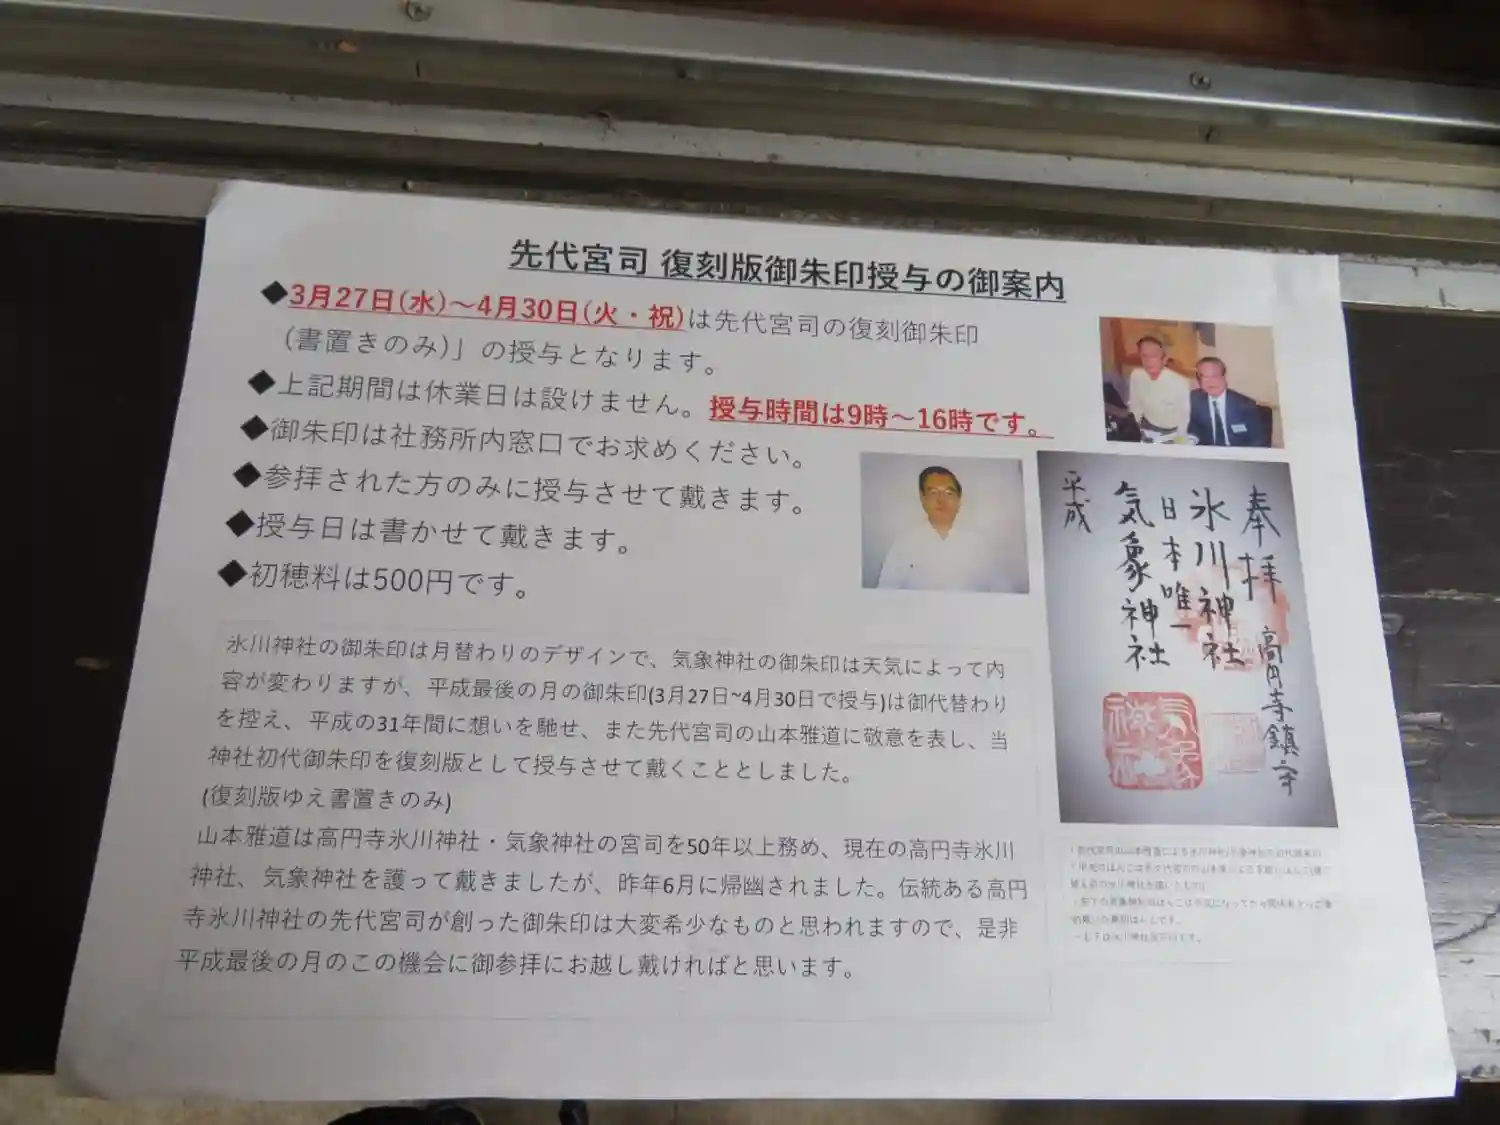 先代宮司 復刻版御朱印授与の御案内
◆3月27日(水)～4月30日(火・祝)は先代宮司の復刻御朱印
(書置きのみ)」の授与となります。
◆上記期間は休業日は設けません。授与時間は9時～16時です。
◆御朱印は社務所内窓口でお求めください。
◆参拝された方のみに授与させて戴きます。
◆授与日は書かせて戴きます。
◆初穂料は500円です。
氷川神社の御朱印は月替わりのデザインで、気象神社の御朱印は天気によって内
容が変わりますが、平成最後の月の御朱印(3月27日~4月30日で授与)は御代替わり
を控え、平成の31年間に想いを馳せ、また先代宮司の山本雅道に敬意を表し、当
神社初代御朱印を復刻版として授与させて戴くこととしました。
(復刻版ゆえ書置きのみ)
山本雅道は高円寺氷川神社・気象神社の宮司を50年以上務め、現在の高円寺氷川
神社、気象神社を護って戴きましたが、昨年6月に帰幽されました。伝統ある高円
寺氷川神社の先代宮司が創った御朱印は大変希少なものと思われますので、是非
平成最後の月のこの機会に御参拝にお越し戴ければと思います。
奉拝
高円寺鎮守
氷川神社
日本唯一
気象神社
平成